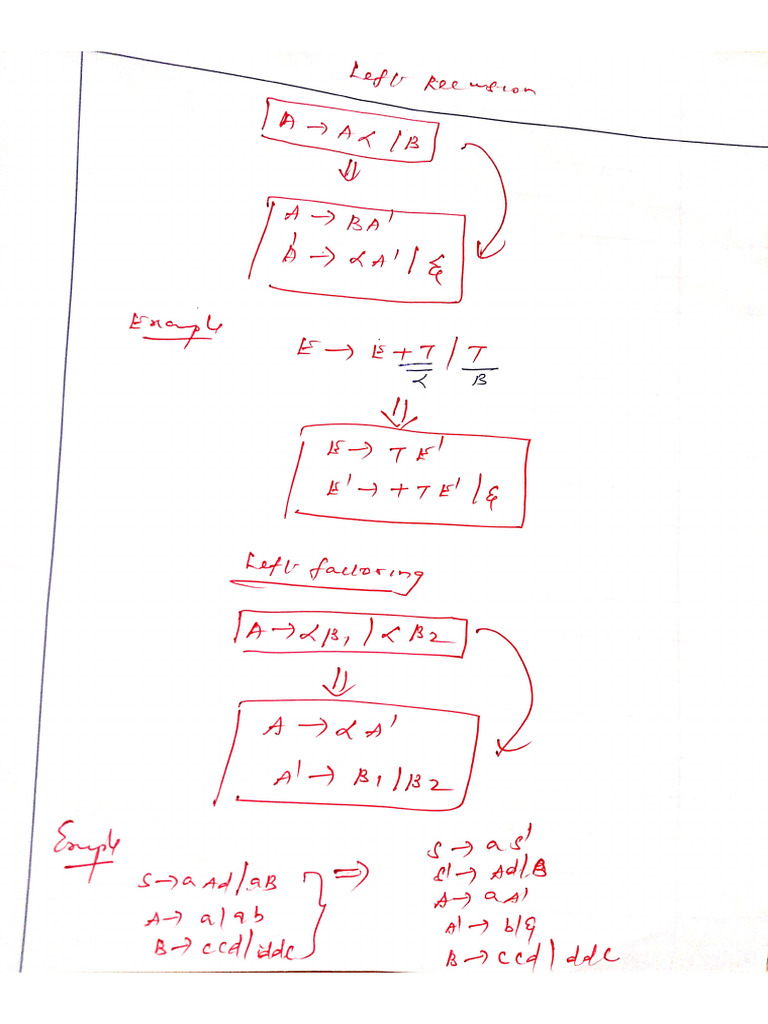 Left Recursion
A → Aα / B
⇓
A → BA'
A' → αA' / ε
Example
E → E + T / T
α B
⇓
E → T E'
E' → + T E' / ε
Left factoring
A → αB1 / αB2
⇓
A → αA'
A' → B1 / B2
Example
S → aAd / aB
A → a / ab
B → ccd / ddc
⇒
S → aS'
S' → Ad / B
A → aA'
A' → b / ε
B → ccd / ddc